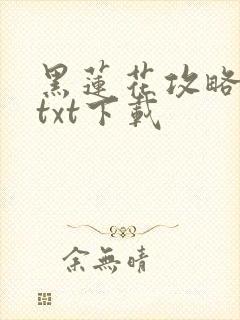 黑蓮花攻略
txt下載
余無晴